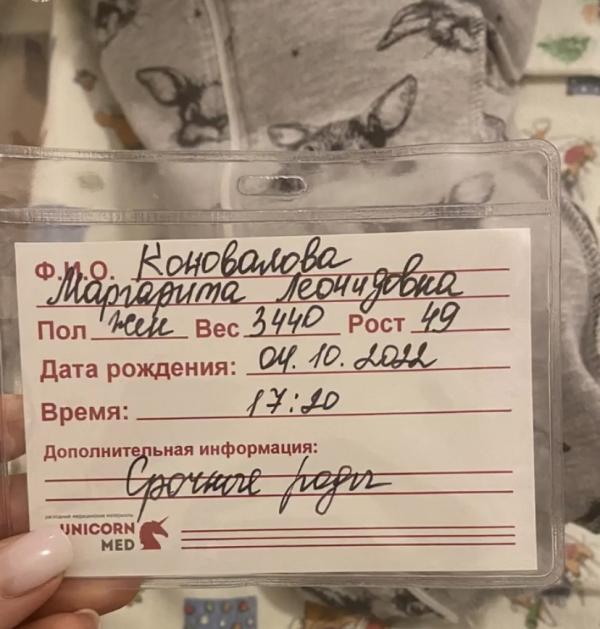 Ф.И.О. Коновалова
Маргарита Леонидовна
Пол жен Вес 3440 Рост 49
Дата рождения: 04.10.2022
Время: 17:20
Дополнительная информация:
Срочные роды
расходные медицинские материалы
UNICORN
MED